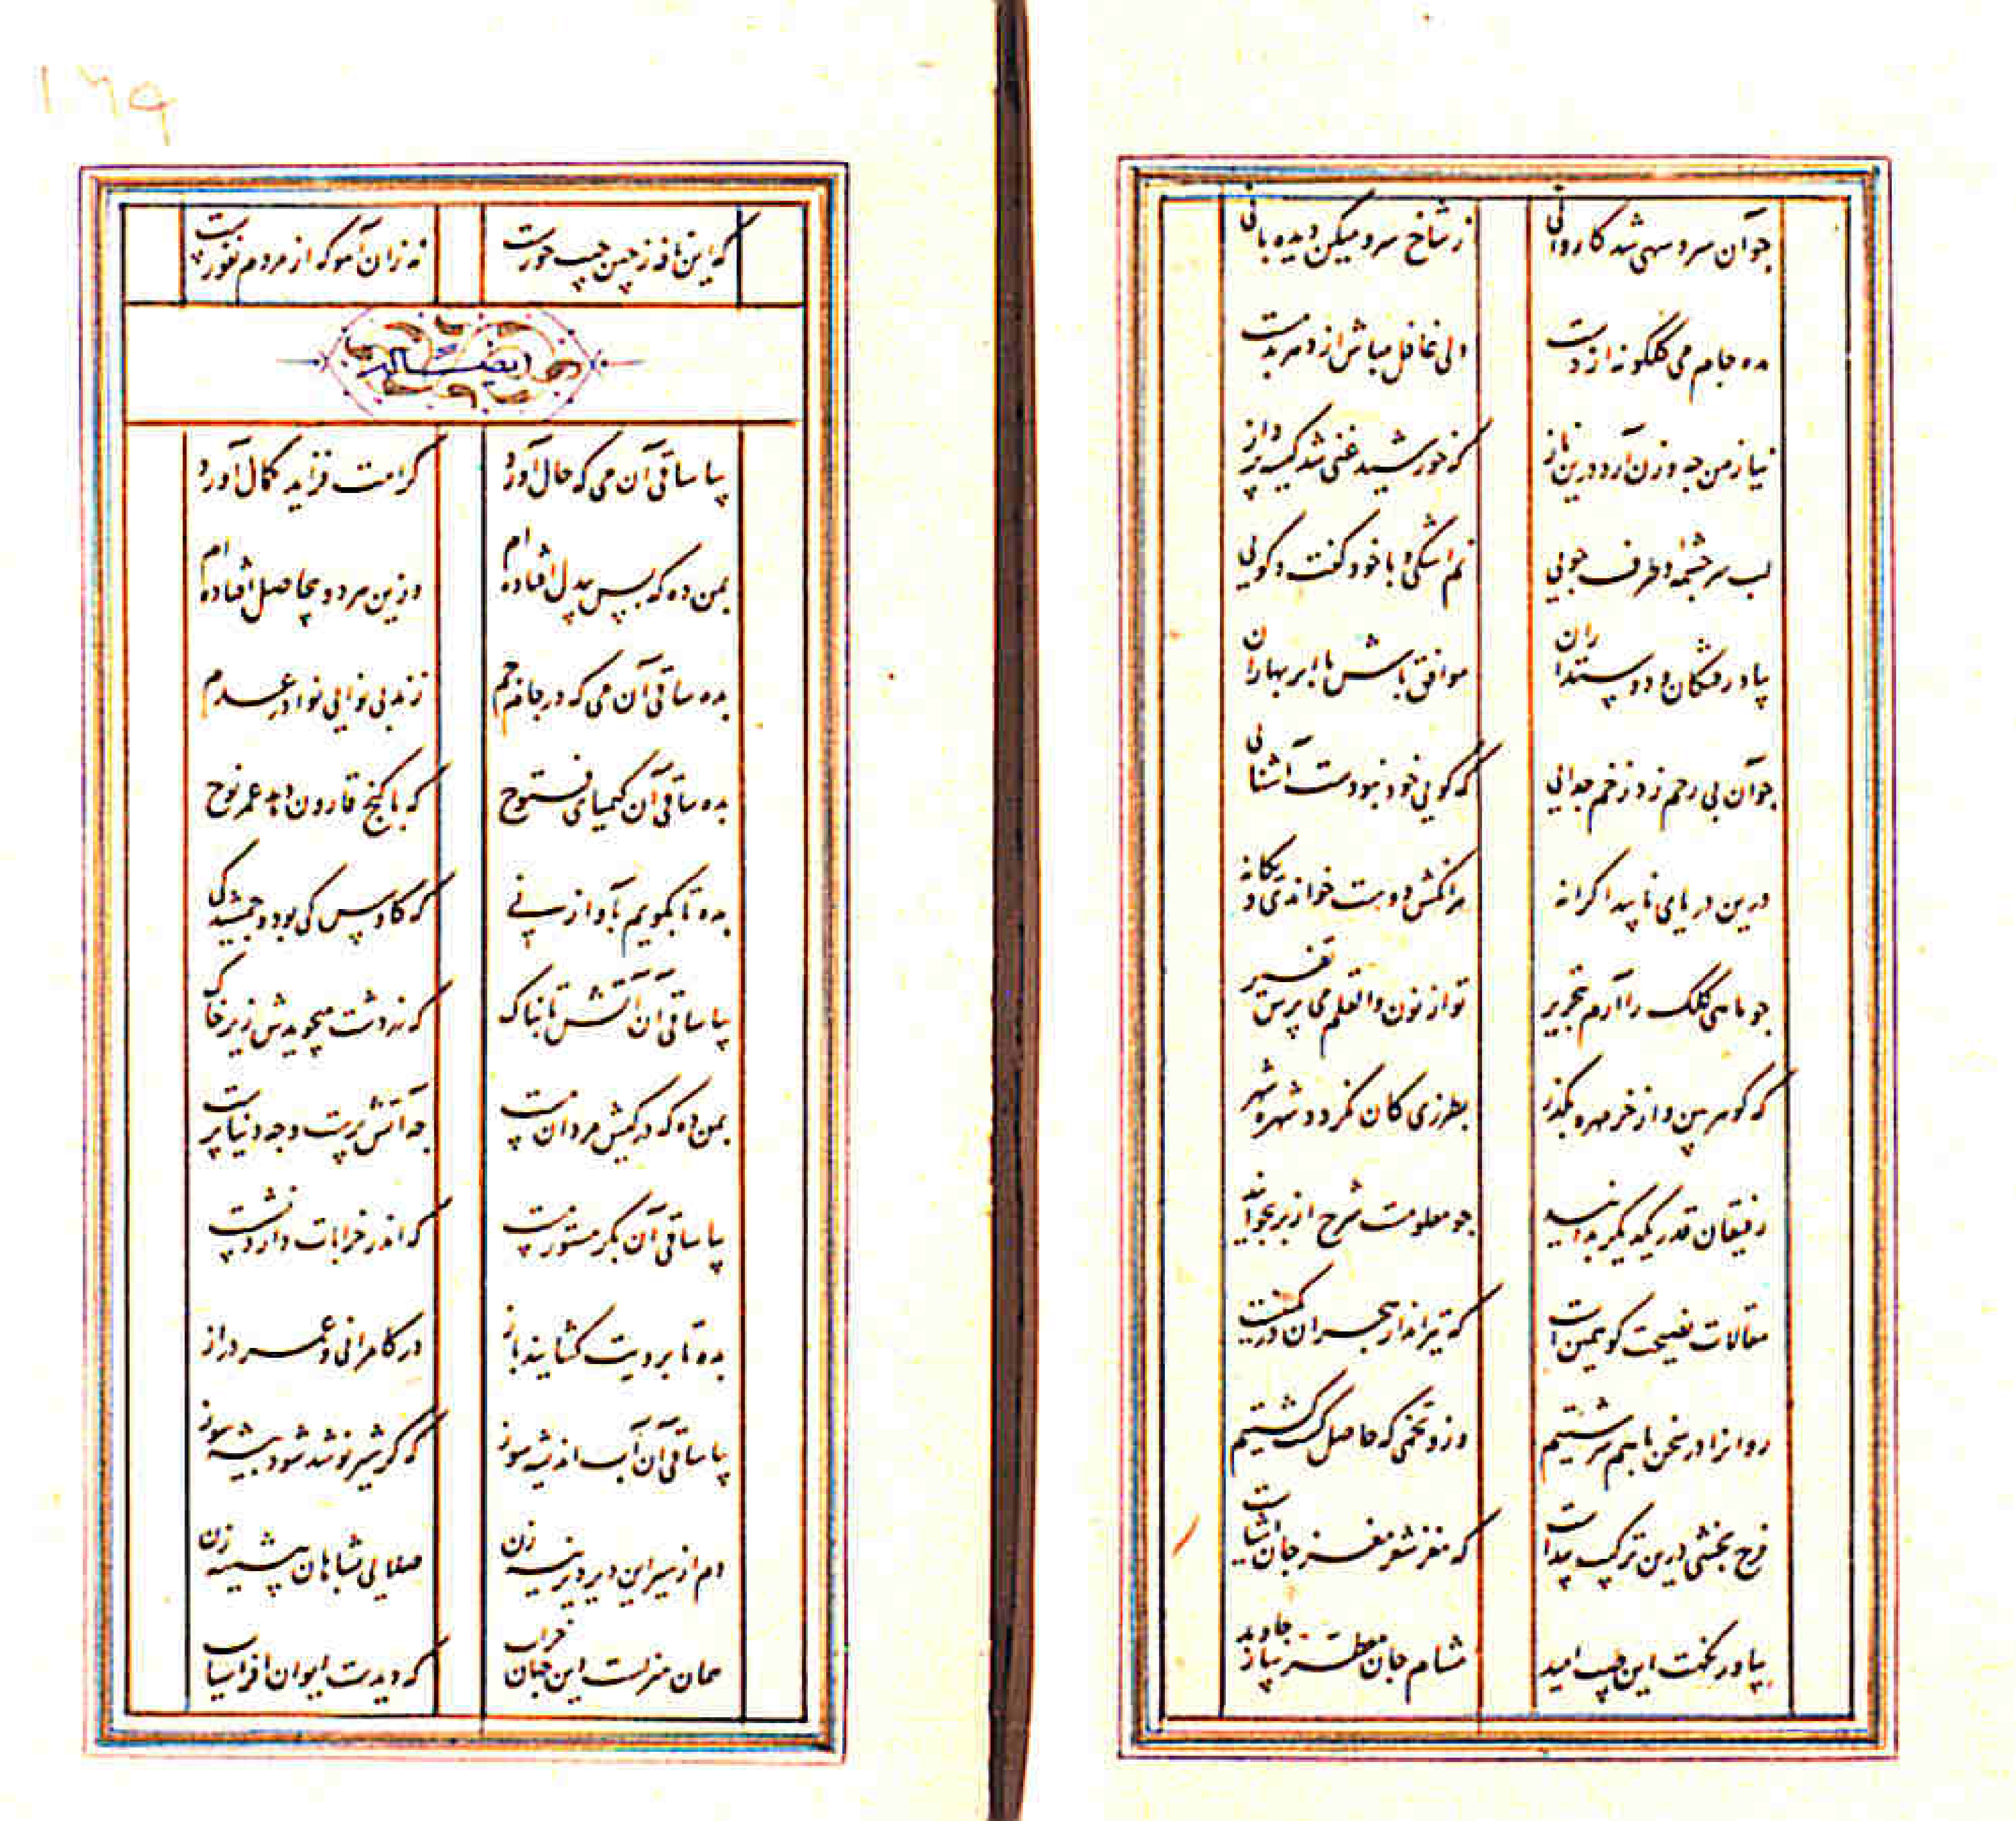 جوآن سرو سهی شد کاروانی ز شاخ سرو میکن دیده بانی
مده جام می گلگونه از دست ولی غافل مباش از دهر بدمست
نیاز من جه وزن آرد درین ناز که خورشید غنی شد کیسه پرداز
لب سرچشمه و طرف جویی نم اشکی و با خود گفت و گویی
بیاد رفتگان و دوستداران موافق باش با ابر بهاران
جوآن بی رحم زد زخم جدایی که گویی خود نبودست آشنایی
درین دریای ناپیدا کرانه
جو ماهی کلک را آرم بتحریر تو از نون والقلم می پرس تفسیر
که گوهر بین و از خرمهره بگذر بطرزی کان نگردد شهره شهر
رفیقان قدر یکدیگر بدانید جو معلومست شرح از بر بخوانید
مقالات نصیحت گو همین است که تیرانداز هجران در کمینست
روانرا در سخن باهم سرشتیم وزو تخمی که حاصل گشت کشتیم
فرح بخشی درین ترکیب پیداست که مغز شعر مغز جان اشیاست
بیاور نکهت این طیب امید مشام جان معطر ساز جاوید
١٦٩
که این نافه ز چین جیب حورست نه زان آهو که از مردم نفورست
ایضا له
بیا ساقی آن می که حال آورد کرامت فزاید کمال آورد
بمن ده که بس بیدل افتاده ام وزین هر دو بیحاصل افتاده ام
بده ساقی آن می که در جام جم زند بی نوایی نوا در عدم
بده ساقی آن کیمیای فتوح که با گنج قارون دهد عمر نوح
بده تا بگویم بآواز نی که کاوس کی بود و جمشید کی
بیا ساقی آن آتش تابناک که زردشت میجویدش زیر خاک
بمن ده که در کیش مردان مست جه آتش پرست و جه دنیا پرست
بیا ساقی آن بکر مستور مست که اندر خرابات دارد نشست
بده تا برویت گشایند باز در کامرانی و عمر دراز
بیا ساقی آن آب اندیشه سوز که گر شیر نوشد شود بیشه سوز
دم از سیر این دیر دیرینه زن صلایی بشاهان پیشینه زن
همان منزلست این جهان خراب که دیدست ایوان افراسیاب